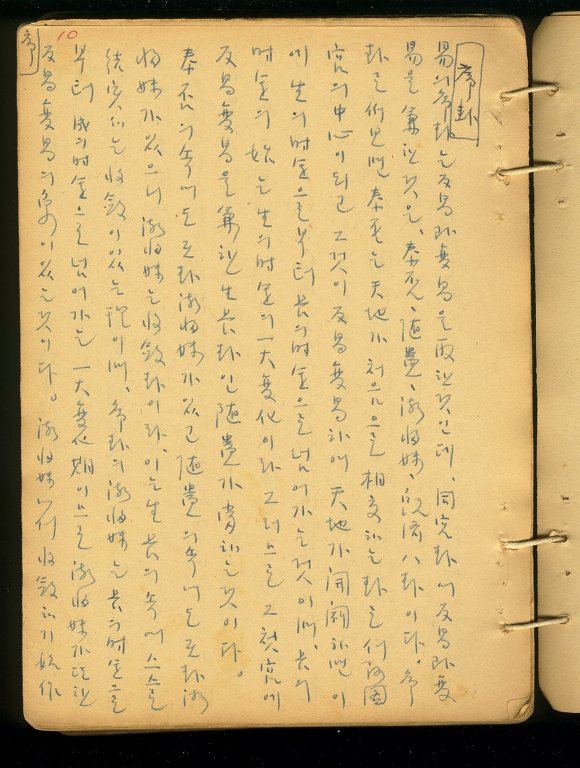 序
10
序卦
易의 序卦는 反易 即 變易을 取한 것인데、同宮卦에 反易 即 變
易을 兼한 것은、泰否、隨蠱、漸歸妹、旣濟八卦이다。序
卦로 보면 泰否는 天地가 처음으로 相交하는 卦로서 河圖
宮의 中心이 되고 그것이 反易變易하여 天地가 開闢하면 이
에 生의 時運으로부터 長의 時運으로 넘어가는 것이며、長의
時運의 始는 生의 時運의 一大變化이라 그러므로 그 初宮에
反易變易을 兼한 生長卦인 隨蠱가 當하는 것이다。
泰否의 속에도 互卦漸歸妹가 있고 隨蠱의 속에도 互卦漸
歸妹가 있으니 漸歸妹는 收斂卦이라、이는 生長의 속에 스스로
結実하는 收斂이 있는 理이며、序卦의 漸歸妹는 長의 時運으로
부터 成의 時運으로 넘어가는 一大變化期이므로 漸歸妹가 또한
反易變易의 象이 있는 것이다。漸歸妹에서 收斂하기 始作